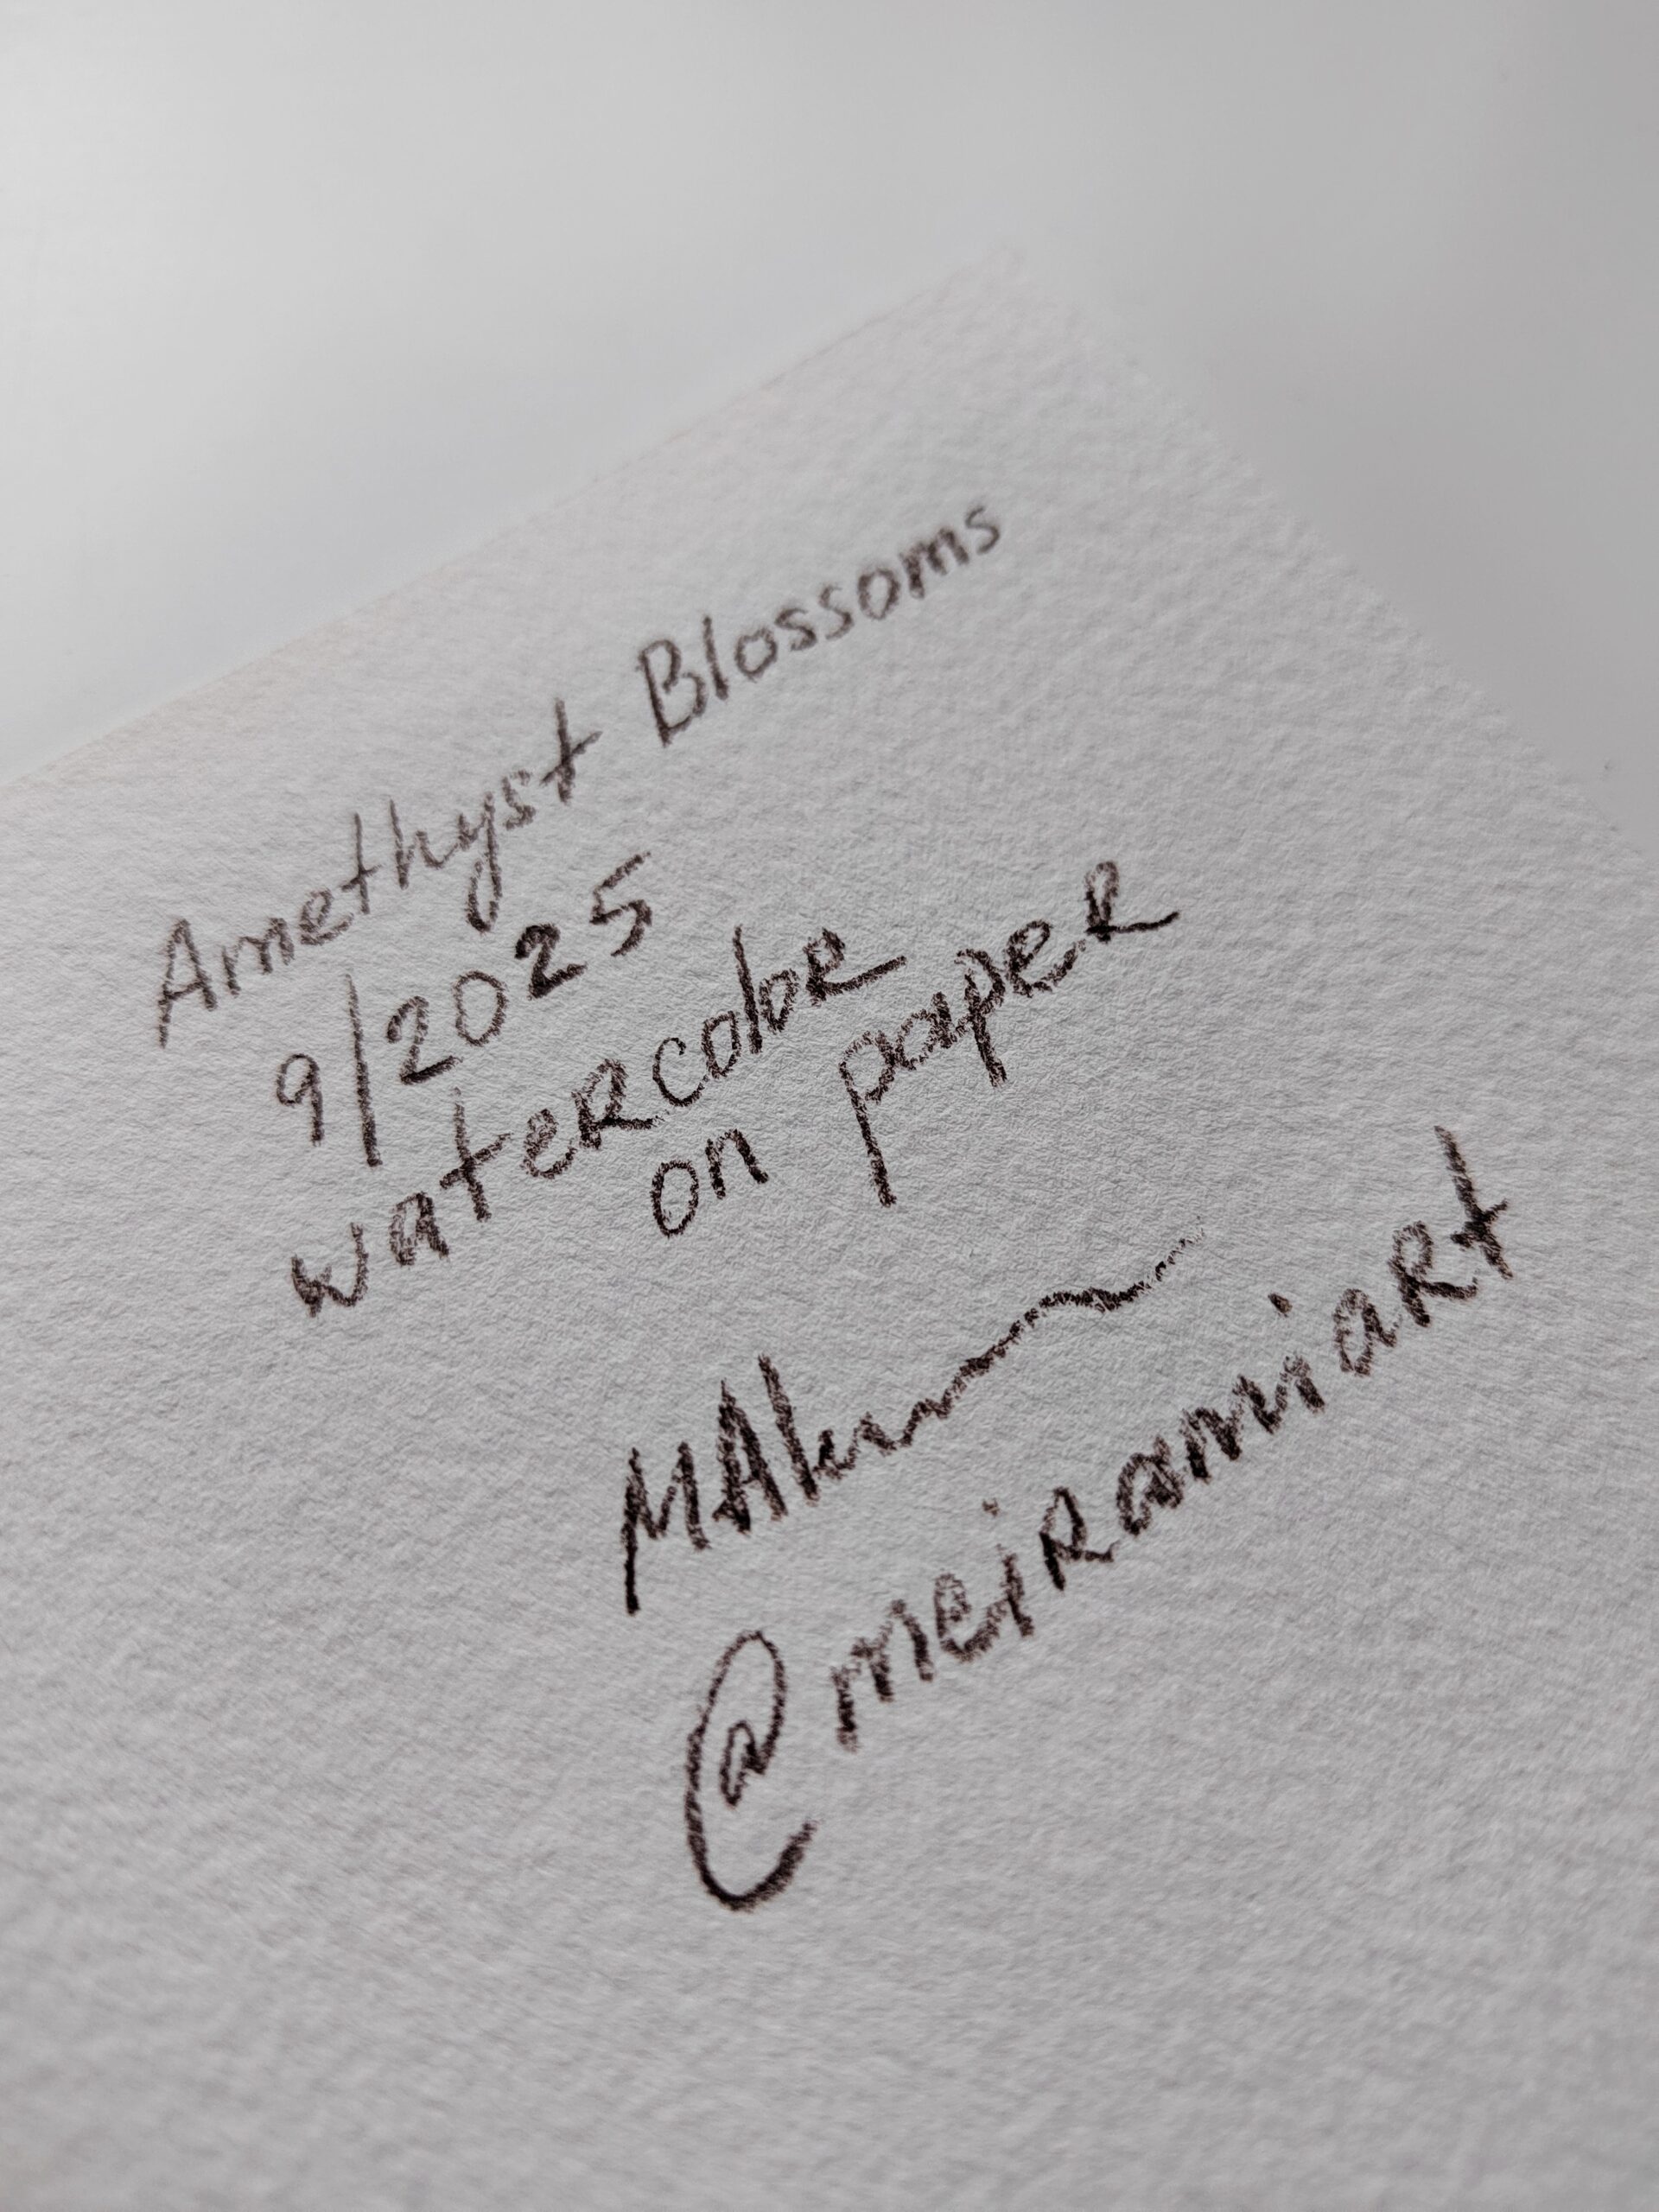 Amethyst Blossoms
9/2025
watercolor
on paper
@meiramiart